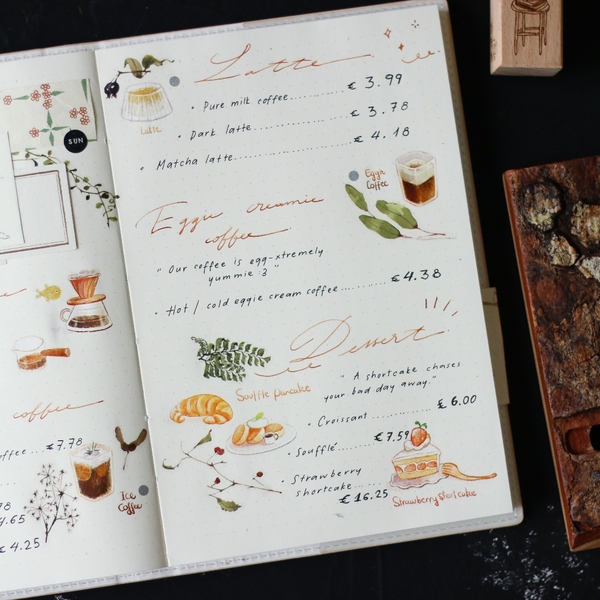 SUN
coffee
offee...€7.78
78
4.65
€ 4.25
Ice
Coffee
Latte
Latte
• Pure milk coffee............ € 3.99
• Dark latte.................. € 3.78
• Matcha latte................ € 4.18
Eggie creamie
coffee
Eggy
Coffee
" Our coffee is egg-xtremely
yummie :3 "
• Hot / cold eggie cream coffee.......... €4.38
Dessert
" A shortcake chases
your bad day away."
Souffle pancake
• Croissant............ £ 6.00
• Soufflé...... €7.59
• Strawberry
shortcake....
€ 16.25
Strawberry shortcake